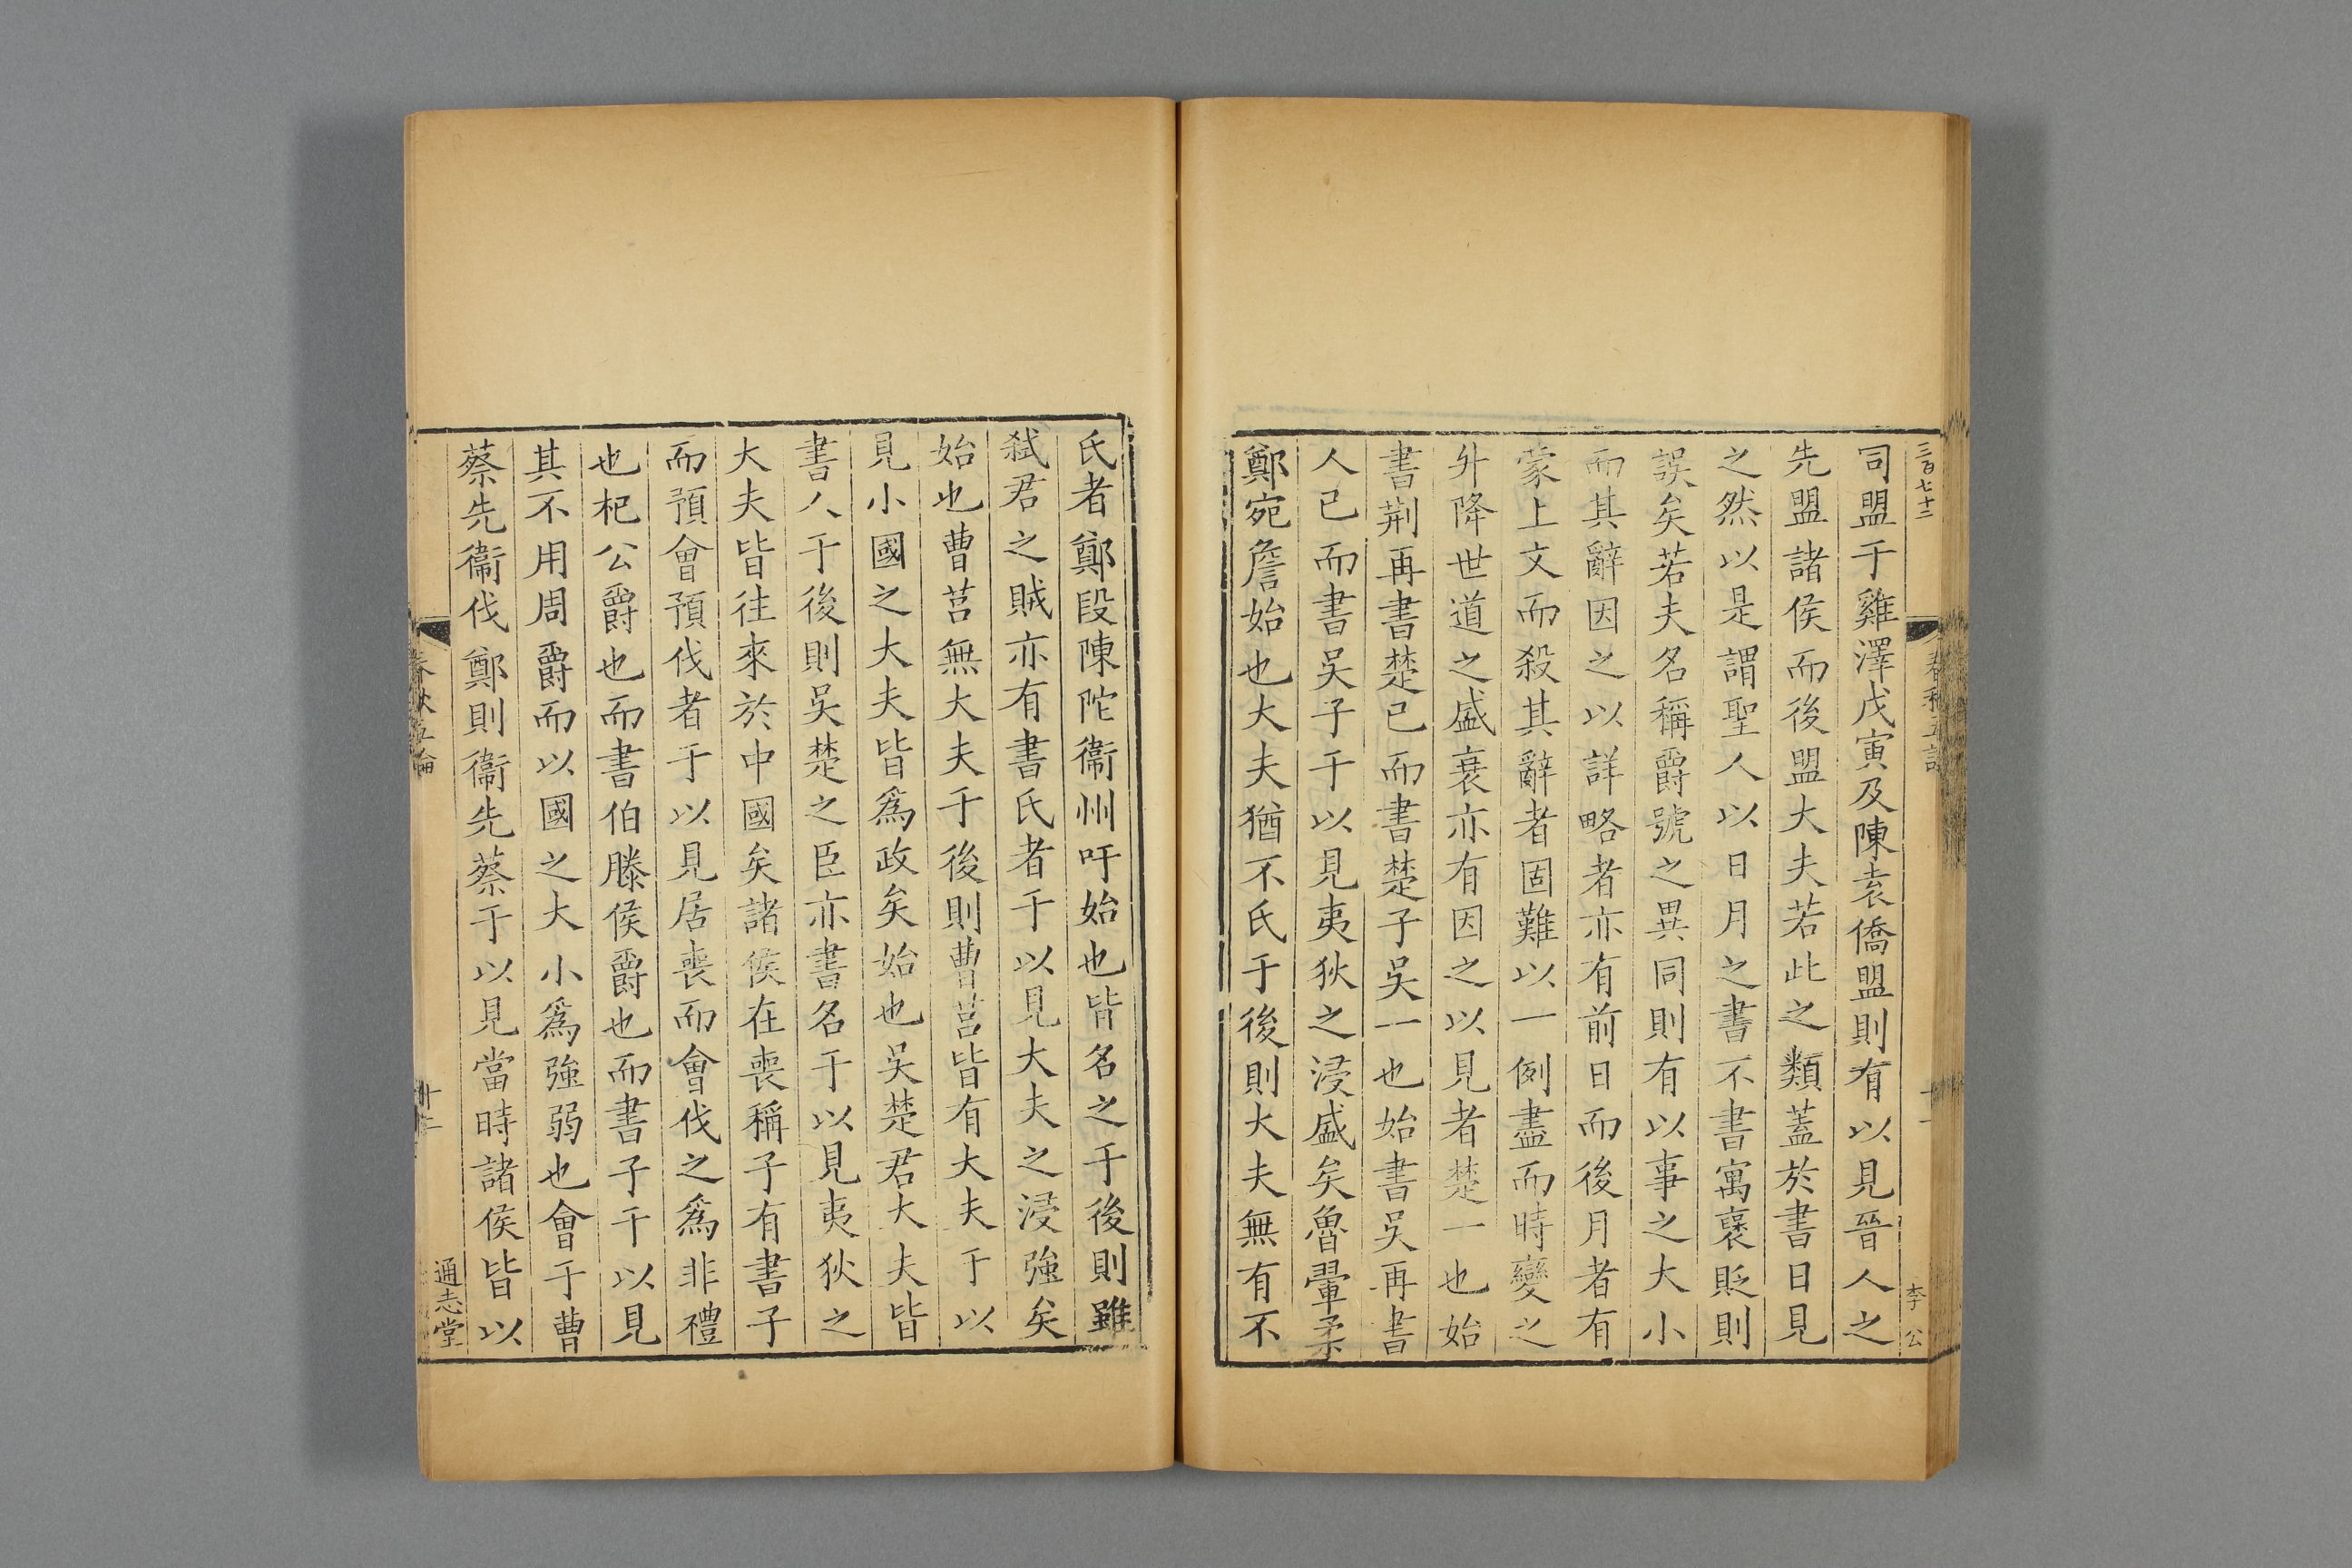 三百七十二
李公
司盟于雞澤戊寅及陳袁僑盟則有以見晉人之
先盟諸侯而後盟大夫若此之類蓋於書日見
之然以是謂聖人以日月之書不書寓襃貶則
誤矣若夫名稱爵號之異同則有以事之大小
而其辭因之以詳略者亦有前日而後月者有
蒙上文而殺其辭者固難以一例盡而時變之
升降世道之盛衰亦有因之以見者楚一也始
書荆再書楚已而書楚子吳一也始書吳再書
人已而書吳子于以見夷狄之浸盛矣魯翬柔
鄭宛詹始也大夫猶不氏于後則大夫無有不
氏者鄭段陳陀衞州吁始也皆名之于後則雖
弑君之賊亦有書氏者于以見大夫之浸強矣
始也曹莒無大夫于後則曹莒皆有大夫于以
見小國之大夫皆爲政矣始也吳楚君大夫皆
書人于後則吳楚之臣亦書名于以見夷狄之
大夫皆往來於中國矣諸侯在喪稱子有書子
而預會預伐者于以見居喪而會伐之爲非禮
也杞公爵也而書伯滕侯爵也而書子于以見
其不用周爵而以國之大小爲強弱也會于曹
蔡先衞伐鄭則衞先蔡于以見當時諸侯皆以
春秋五論
通志堂